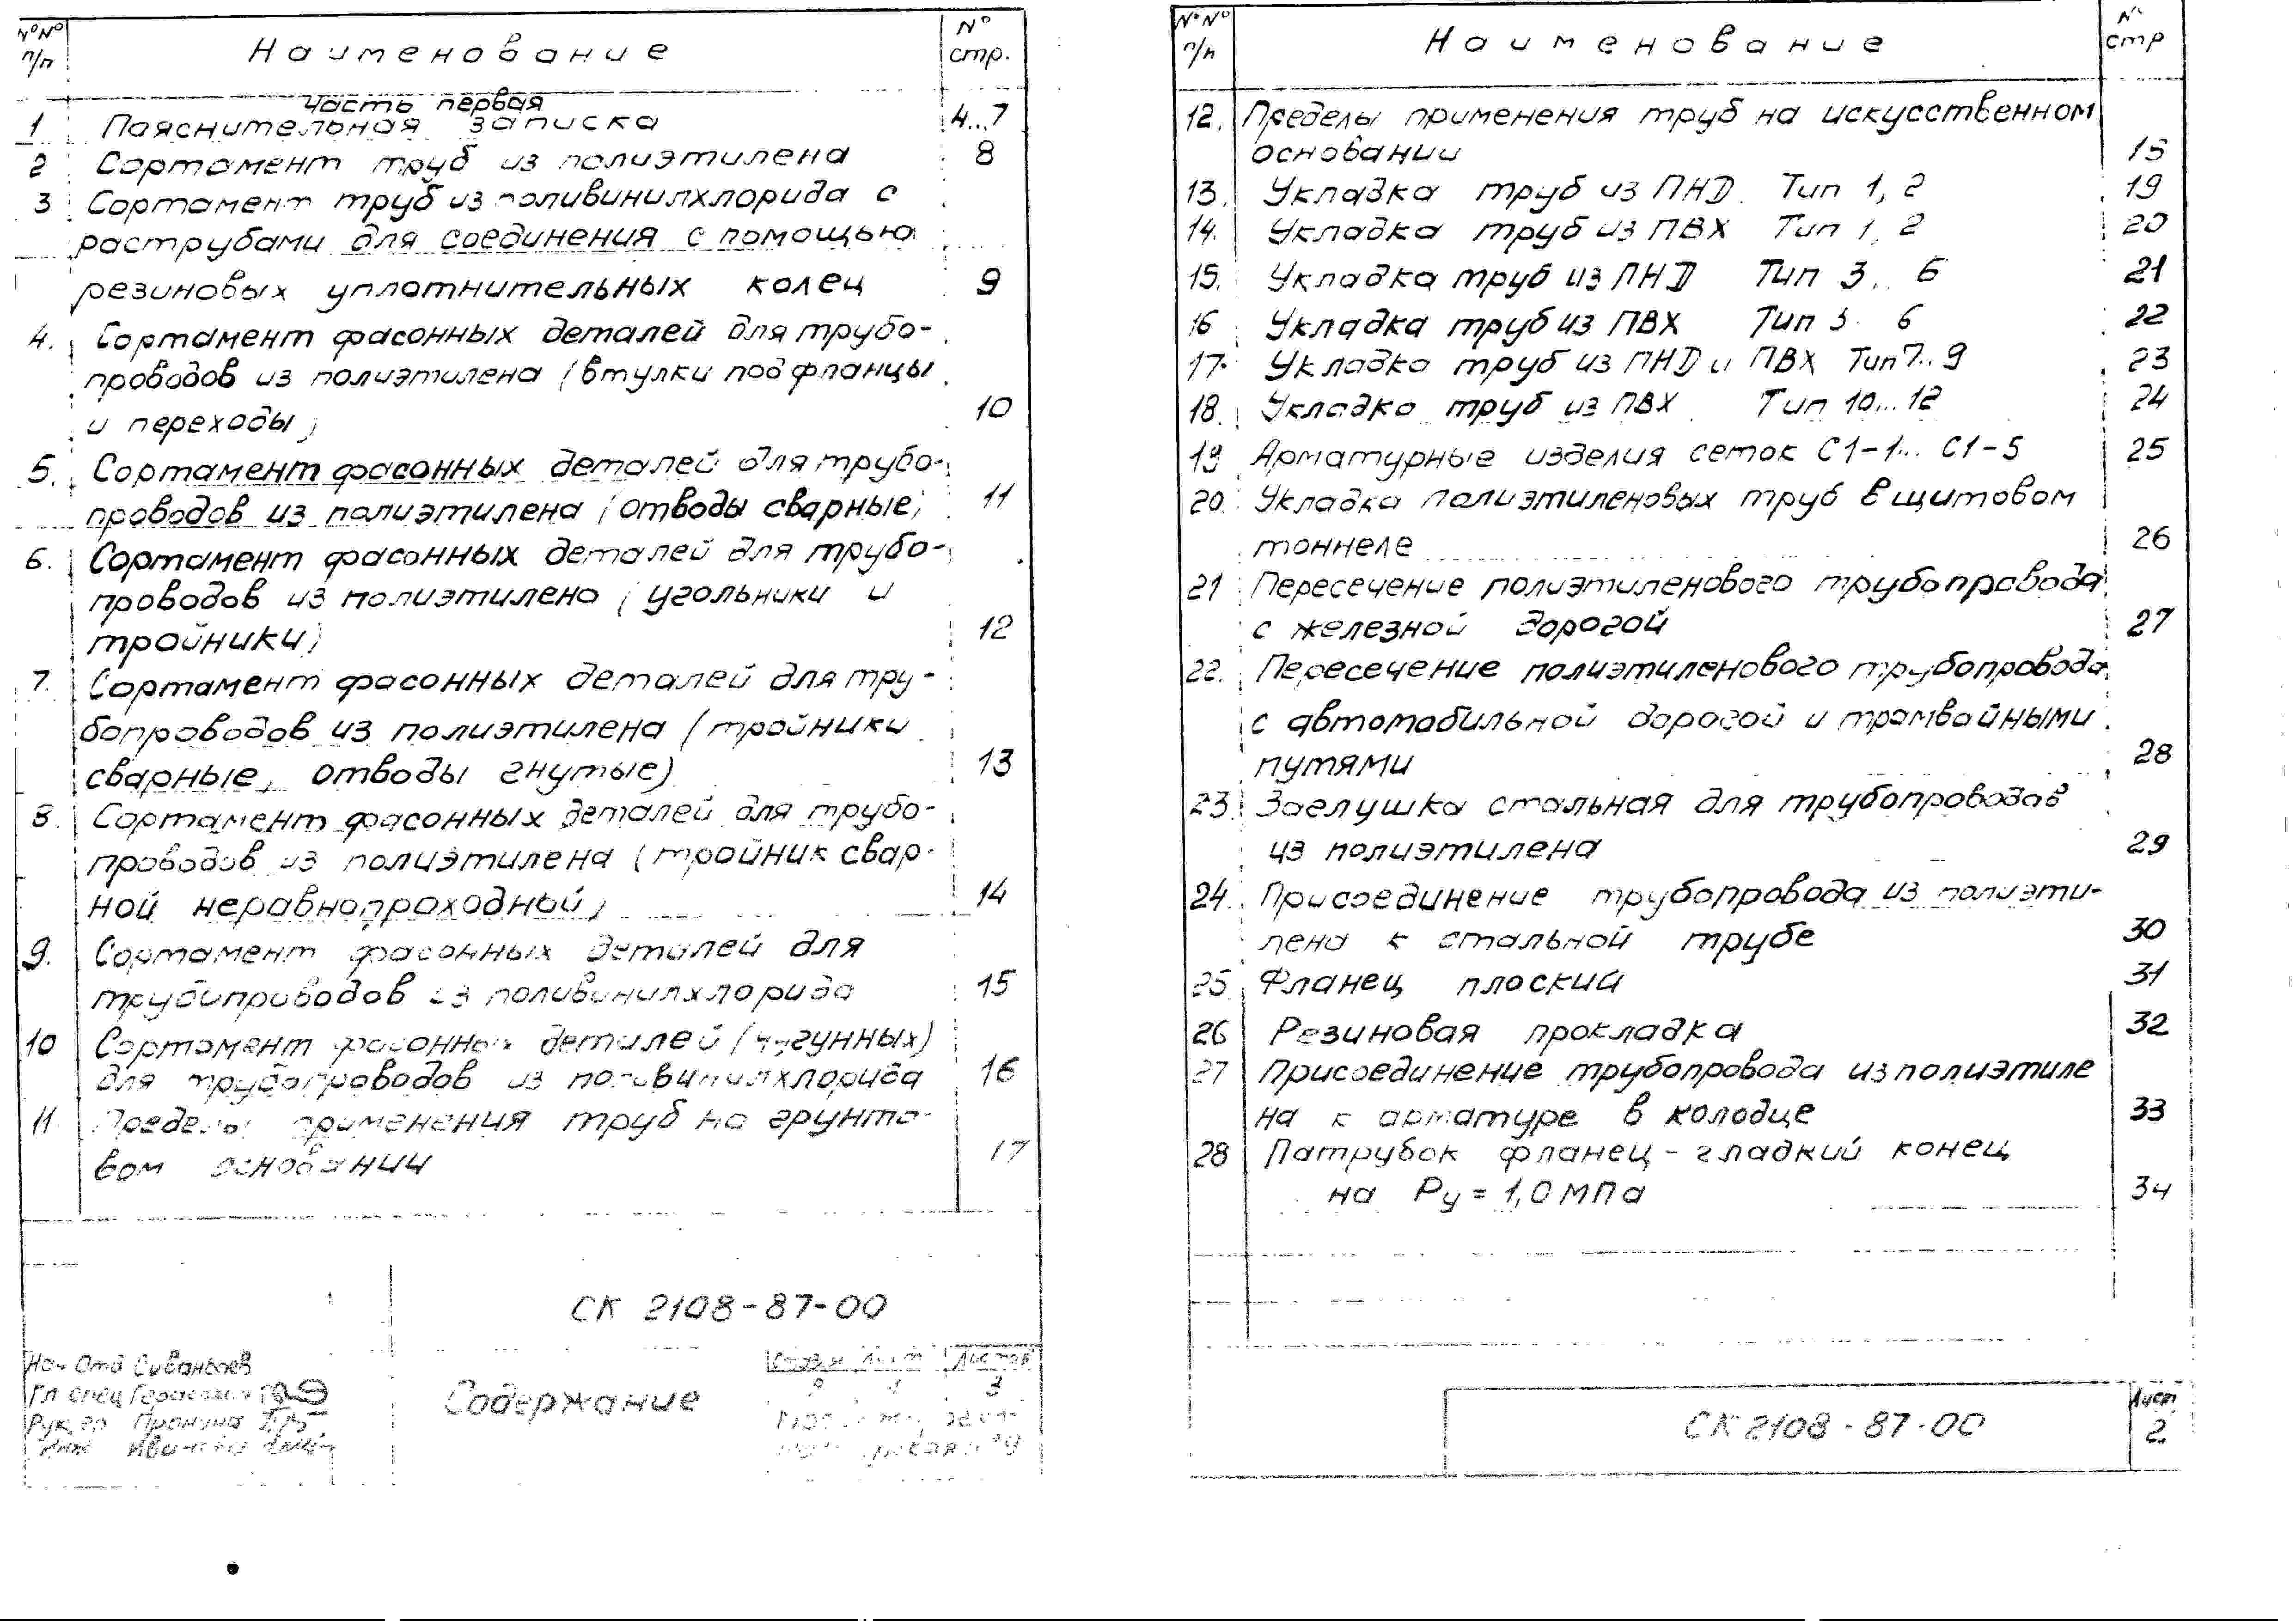 №№ п/п Наименование № стр.
Часть первая
1 Пояснительная записка 4...7
2 Сортамент труб из полиэтилена 8
3 Сортамент труб из поливинилхлорида с
раструбами для соединения с помощью
резиновых уплотнительных колец 9
4. Сортамент фасонных деталей для трубо-
проводов из полиэтилена (втулки под фланцы
и переходы) 10
5. Сортамент фасонных деталей для трубо-
проводов из полиэтилена (отводы сварные) 11
6. Сортамент фасонных деталей для трубо-
проводов из полиэтилена (угольники и
тройники) 12
7. Сортамент фасонных деталей для тру-
бопроводов из полиэтилена (тройники
сварные, отводы гнутые) 13
8. Сортамент фасонных деталей для трубо-
проводов из полиэтилена (тройник свар-
ной неравнопроходной) 14
9. Сортамент фасонных деталей для
трубопроводов из поливинилхлорида 15
10 Сортамент фасонных деталей (чугунных)
для трубопроводов из поливинилхлорида 16
11. Пределы применения труб на грунто-
вом основании 17
СК 2108-87-00
Нач Отд
Гл спец
Рук. гр Пронина
Инж
Содержание
Стадия Лист Листов
1 3
№№ п/п Наименование № стр
12. Пределы применения труб на искусственном
основании 18
13. Укладка труб из ПНД. Тип 1, 2 19
14. Укладка труб из ПВХ Тип 1, 2 20
15. Укладка труб из ПНД Тип 3.. 6 21
16 Укладка труб из ПВХ Тип 3. 6 22
17. Укладка труб из ПНД и ПВХ Тип 7.. 9 23
18. Укладка труб из ПВХ Тип 10... 12 24
19 Арматурные изделия сеток С1-1... С1-5 25
20. Укладка полиэтиленовых труб в щитовом
тоннеле 26
21 Пересечение полиэтиленового трубопровода
с железной дорогой 27
22. Пересечение полиэтиленового трубопровода
с автомобильной дорогой и трамвайными
путями 28
23. Заглушка стальная для трубопроводов
из полиэтилена 29
24. Присоединение трубопровода из полиэти-
лена к стальной трубе 30
25. Фланец плоский 31
26 Резиновая прокладка 32
27 Присоединение трубопровода из полиэтиле
на к арматуре в колодце 33
28 Патрубок фланец - гладкий конец
на Ру = 1,0 МПа 34
СК 2108-87-00
Лист
2